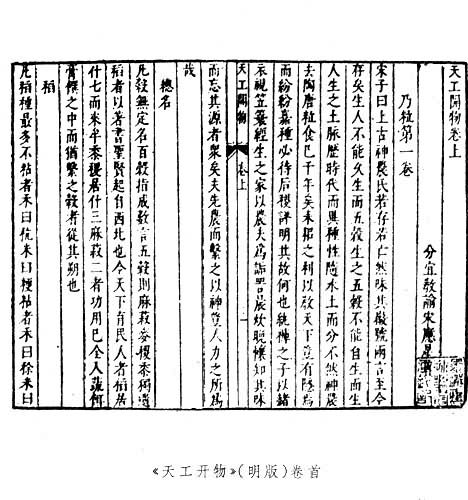 天工開物卷上
分宜教諭宋應星著
乃粒第一卷
宋子曰上古神農氏若存若亡然味其徽號兩言至今
存矣生人不能久生而五穀生之五穀不能自生而生
人生之土脈歷時代而異種性隨水土而分不然神農
去陶唐粒食已千年矣耒耜之利以敎天下豈有隱焉
而紛紛嘉種必待后稷詳明其故何也紈褲之子以赭
衣視笠蓑經生之家以農夫爲詬詈晨炊晚饟知其味
天工開物 卷上 一
而忘其源者眾矣夫先農而繫之以神豈人力之所爲
哉
總名
凡穀無定名百穀指成數言五穀則麻菽麥稷黍獨遺
稻者以著書聖賢起自西北也今天下育民人者稻居
什七而來牟黍稷居什三麻菽二者功用已全入蔬餌
膏饌之中而猶繫之穀者從其朔也
稻
凡稻種最多不粘者禾曰秔米曰粳粘者禾曰稌米曰
《天工开物》(明版)卷首